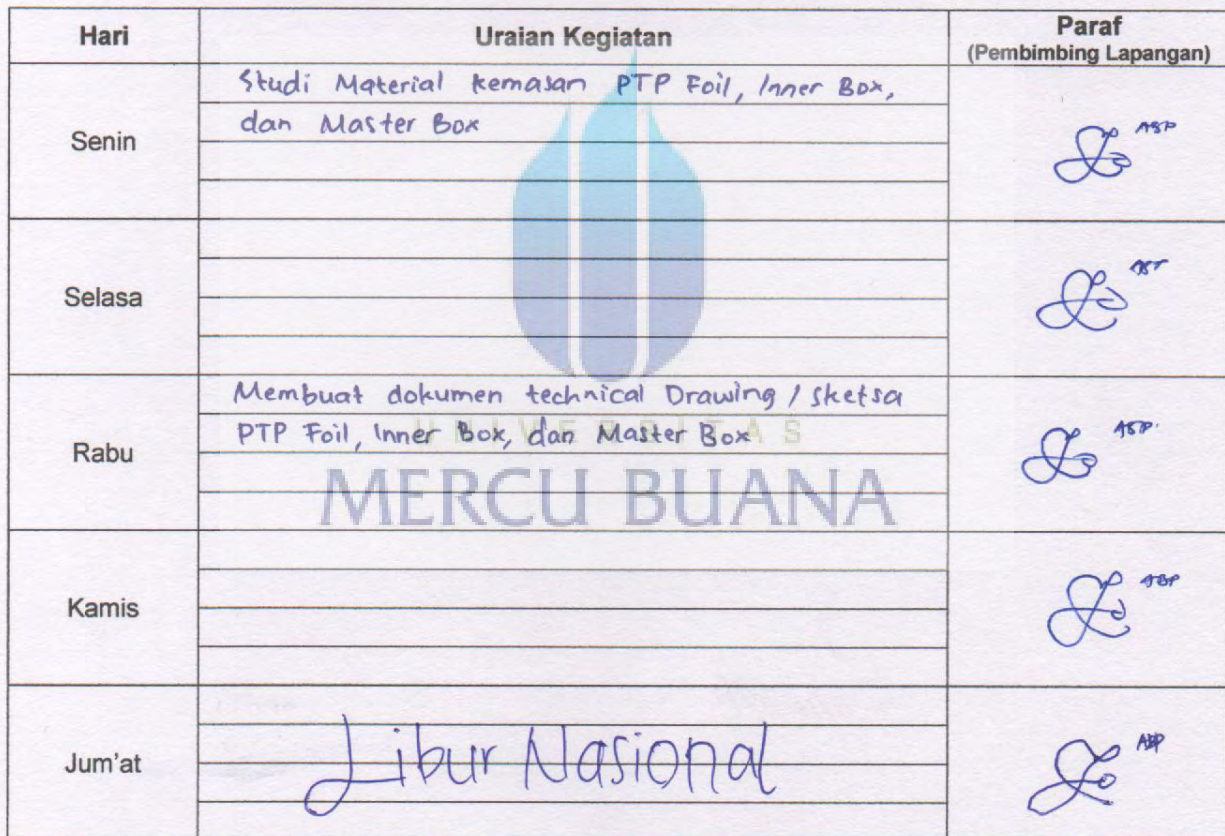 Hari Uraian Kegiatan Paraf
(Pembimbing Lapangan)
Senin
Studi Material kemasan PTP Foil, Inner Box,
dan Master Box
ASP
Selasa
Rabu
Membuat dokumen technical Drawing / sketsa
PTP Foil, Inner Box, dan Master Box
ASP
UNIVERSITAS
MERCU BUANA
Kamis
ASP
Jum'at
Libur Nasional